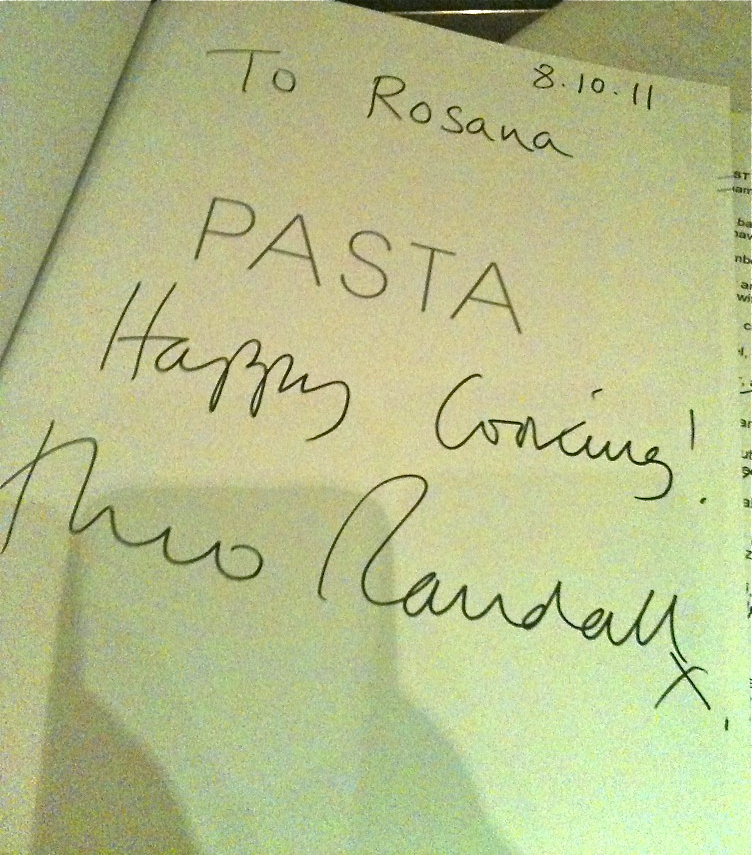 8.10.11
To Rosana
PASTA
Happy Cooking!
Theo Randall
x